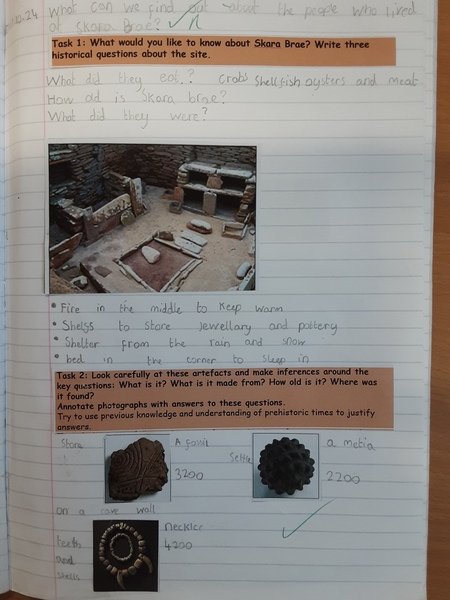 10.24
What can we find out about the people who lived
at Skara Brae?
Task 1: What would you like to know about Skara Brae? Write three
historical questions about the site.
What did they eat.? Crobs Shellfish oysters and meat
How old is Skara brae?
What did they were?
• Fire in the middle to keep warm
• to store Jewellary and pottery
• Shelter from the rain and snow
• bed in the corner to sleep in
Task 2: Look carefully at these artefacts and make inferences around the
key questions: What is it? What is it made from? How old is it? Where was
it found?
Annotate photographs with answers to these questions.
Try to use previous knowledge and understanding of prehistoric times to justify
answers.
Stone A fossil a
3200 2200
on a cave wall
teeth 4200
and
shells